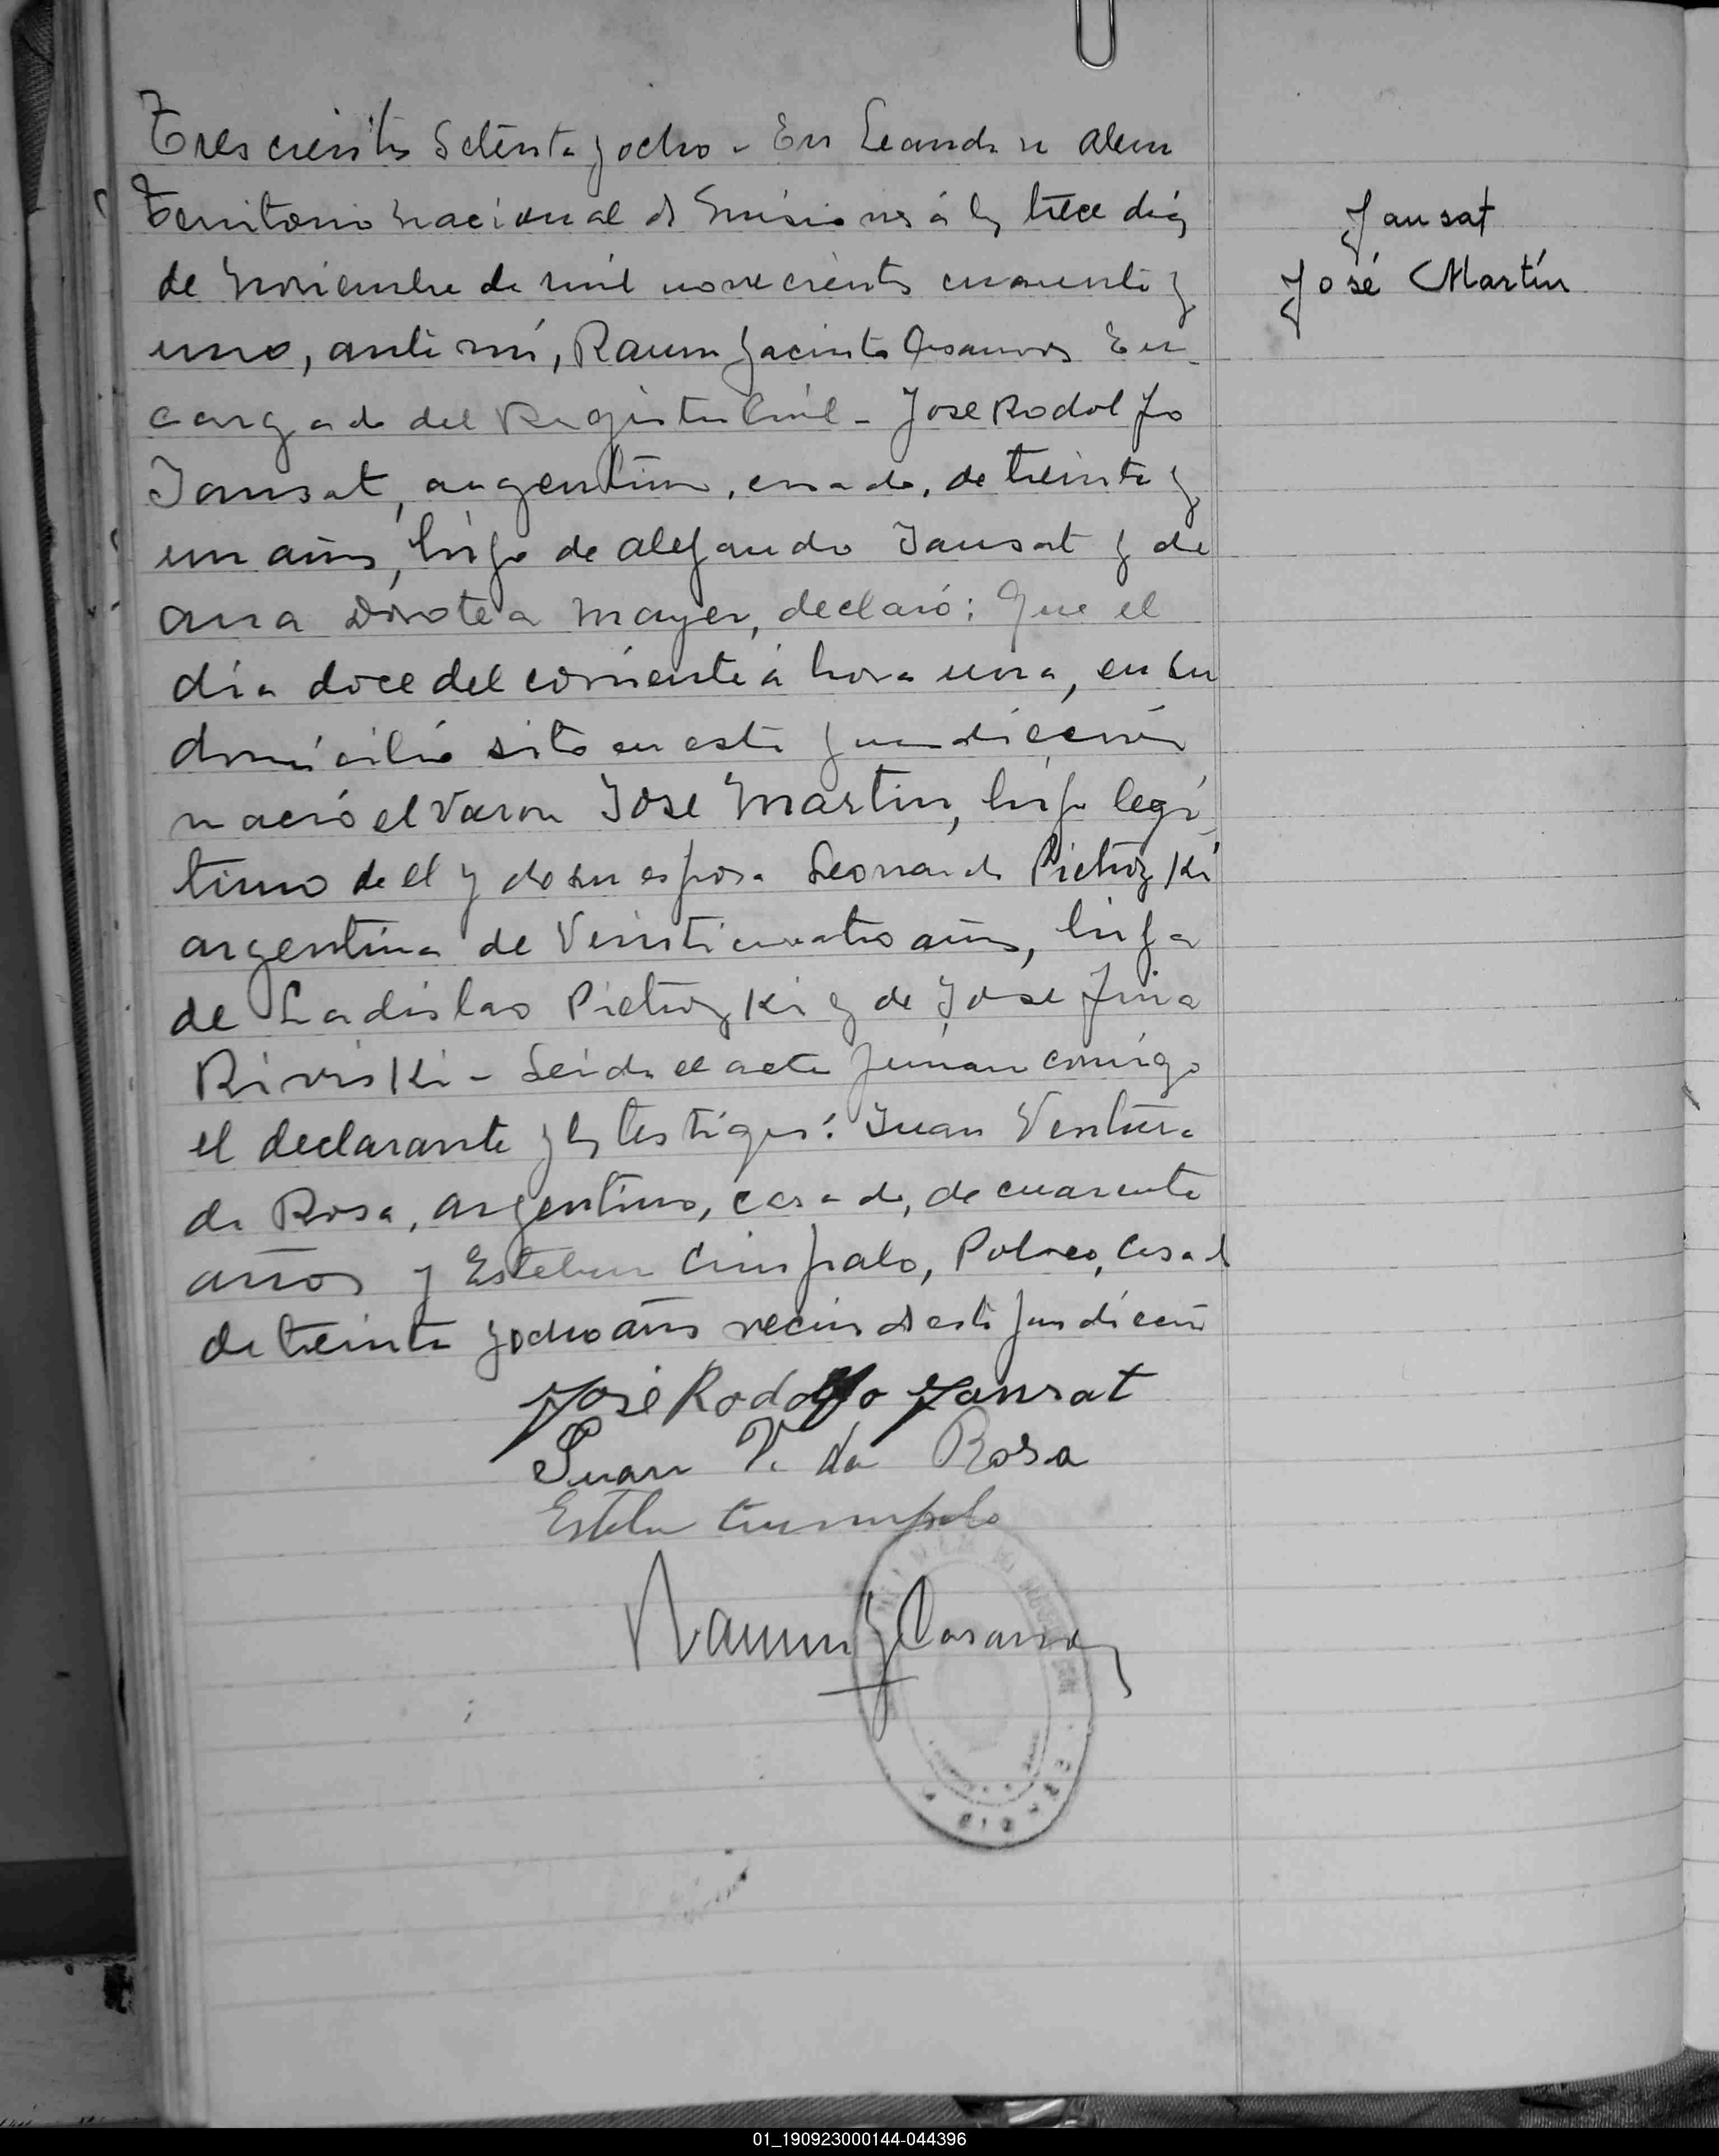 Trescientos Setenta y ocho - En Leandro n Alem
Jansat
Territorio Nacional de Misiones á los trece días
José Martín
de Noviembre de mil novecientos cuarenta y
uno, ante mí, Ramon Jacinto Casanova En-
cargado del Registro Civil - Jose Rodolfo
Jansat, argentino, casado, de treinta y
un años, hijo de Alejandro Jansat y de
Ana Dorotea Mayer, declaró: Que el
día doce del corriente á hora una, en su
domicilio sito en esta jurisdicción
nació el varon Jose Martin, hijo legí-
timo de el y de su esposa Leonarda Pietrozki
argentina de Veinticuatro años, hija
de Ladislao Pietrozki y de Josefina
Riviski - Leida el acta firman conmigo
el declarante y los testigos: Juan Ventura
da Rosa, argentino, casado, de cuarenta
años y Esteban Cimpalo, Polaco, casado
de treinta y ocho años vecinos de esta jurisdiccion
José Rodolfo Jansat
Juan V. da Rosa
Ramon J Casanova
01_190923000144-044396